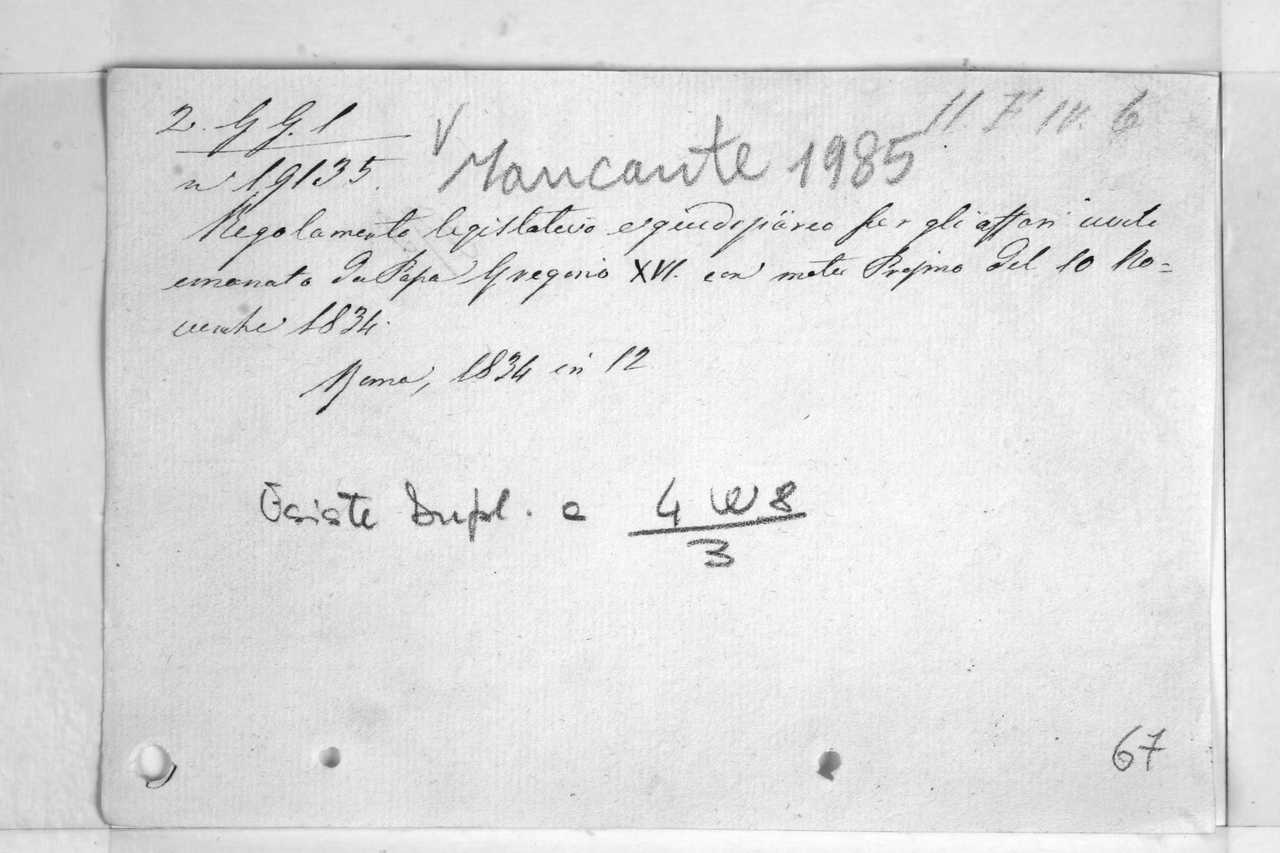 2. G G. 1
II. F IV. 6
n 19135.
V Mancante 1985
Regolamento legislativo e giudiziario per gli affari civili
emanato da Papa Gregorio XVI. con motu Proprio del 10 No=
vembre 1834.
Roma, 1834 in 12
Esiste Dupl. a 4 W 8
3
67